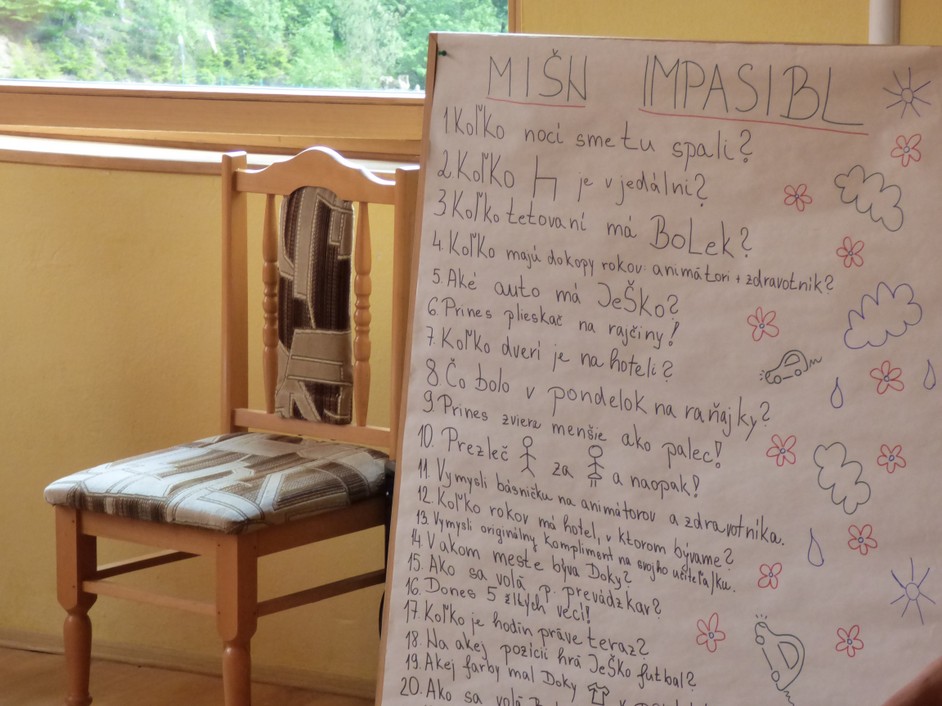 MIŠN IMPASIBL
1 Koľko nocí sme tu spali?
2 Koľko je v jedálni?
3 Koľko tetovaní má BoLek?
4. Koľko majú dokopy rokov animátori + zdravotník?
5. Aké auto má JeŠko?
6. Prines plieskač na rajčiny!
7. Koľko dverí je na hoteli?
8 Čo bolo v pondelok na raňajky?
9 Prines zviera menšie ako palec!
10. Prezleč za a naopak!
11 Vymysli básničku na animátorov a zdravotníka.
12. Koľko rokov má hotel, v ktorom bývame?
13. Vymysli originálny kompliment na svojho učiteľa/ku.
14 V akom meste býva Doky?
15. Ako sa volá p. prevádzkar?
16. Dones 5 žltých vecí!
17 Koľko je hodín práve teraz?
18. Na akej pozícii hrá JeŠko futbal?
19. Akej farby mal Doky v
20. Ako sa volá